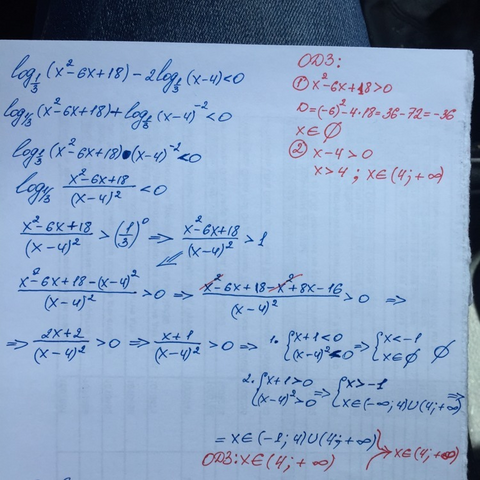 log_{1/3}(x²-6x+18) - 2log_{1/3}(x-4)<0
log_{1/3}(x²-6x+18)+log_{1/3}(x-4)^{-2}<0
log_{1/3}(x²-6x+18)•(x-4)^{-2}<0
log_{1/3} (x²-6x+18)/(x-4)² <0
(x²-6x+18)/(x-4)² > (1/3)⁰ ⇒ (x²-6x+18)/(x-4)² >1
(x²-6x+18-(x-4)²)/(x-4)² >0 ⇒ (x²-6x+18-x²+8x-16)/(x-4)² >0 ⇒
⇒ (2x+2)/(x-4)² >0 ⇒ (x+1)/(x-4)² >0 ⇒ 1. {x+1<0 (x-4)²<0 ⇒ {x<-1 x∈∅ ∅
2. {x+1>0 (x-4)²>0 ⇒ {x>-1 x∈(-∞;4)∪(4;+∞) ⇒
= x∈(-1;4)∪(4;+∞)
ОДЗ: x∈(4;+∞) ⇒ x∈(4;+∞)
ОДЗ:
① x²-6x+18>0
D=(-6)²-4·18=36-72=-36
x∈∅
② x-4>0
x>4 ; x∈(4;+∞)